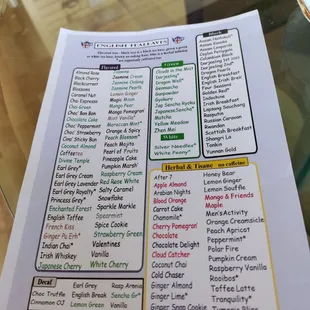 ENGLISH TEALEAVES
Flavored
Almond Rose
Black Cherry
Blackcurrant
Blossoms
Caramel Nut
Chai Espresso
Chai Green
Choc Bon Bon
Chocolate Cake
Choc Peppermint
Choc Strawberry
Cinn Sticky Bun
Coconut Almond
Coffeetea
Divine Temple
Earl Grey
Earl Grey Cream
Earl Grey Lavender
Earl Grey Royalty
Princess Grey
Enchanted Forest
English Toffee
French Kiss
Ginger Pu Erh
Indian Chai
Irish Whiskey
Japanese Cherry
Jasmine
Jasmine Cream
Jasmine Oolong
Jasmine Pearls
Lemon Ginger
Magic Moon
Mango Pear
Mango Pomegran
Mint Vanilla
Moroccan Mint
Orange & Spicy
Peach Blossom
Peach Mojito
Pearl of Fruits
Pineapple Cake
Pumpkin Marshl
Raspberry Cream
Red Rose White
Salty Caramel
Snowflake
Sparkle Markle
Spearmint
Spice Cookie
Strawberry Green
Valentines
Vanilla
White Cherry
Green
Clouds in the Mist
Darjeeling
Dragon Well
Genmaicha
Gunpowder
Gyokuro
Jap Sencha Kyoku
Japanese Sencha
Matcha
Yellow Meadow
Zhen Mei
White
Silver Needles
White Peony
Assam Leopards
Ceylon
Darjeeling 1st
Dragon Pearls
English Breakfast
English Brek
Four Seasons
Golden Red
Indochine
Irish Breakfast
Lapsang
Russian Caravan
Rwandan
Scottish Breakfast
Shangri La
Tonkin
Yunnan Gold
Herbal & Tisane no caffeine
After 7
Apple Almond
Arabian Nights
Blood Orange
Carrot Cake
Chamomile
Cherry Pomegran
Chocolate
Chocolate Delight
Cloud Catcher
Coconut Chai
Cold Chaser
Ginger Almond
Ginger Lime
Ginger Snap Cookie
Honey Bear
Lemon Ginger
Lemon Souffle
Mango & Friends
Maple
Men's Activity
Orange Creamsicle
Peach Apricot
Peppermint
Polar Fire
Pumpkin Cream
Raspberry Vanilla
Rooibos
Toffee Latte
Tranquility
Decaf
Choc Truffle
Cinnamon OJ
Earl Grey
English Break
Lemon Green
Sencha Gr
Vanilla